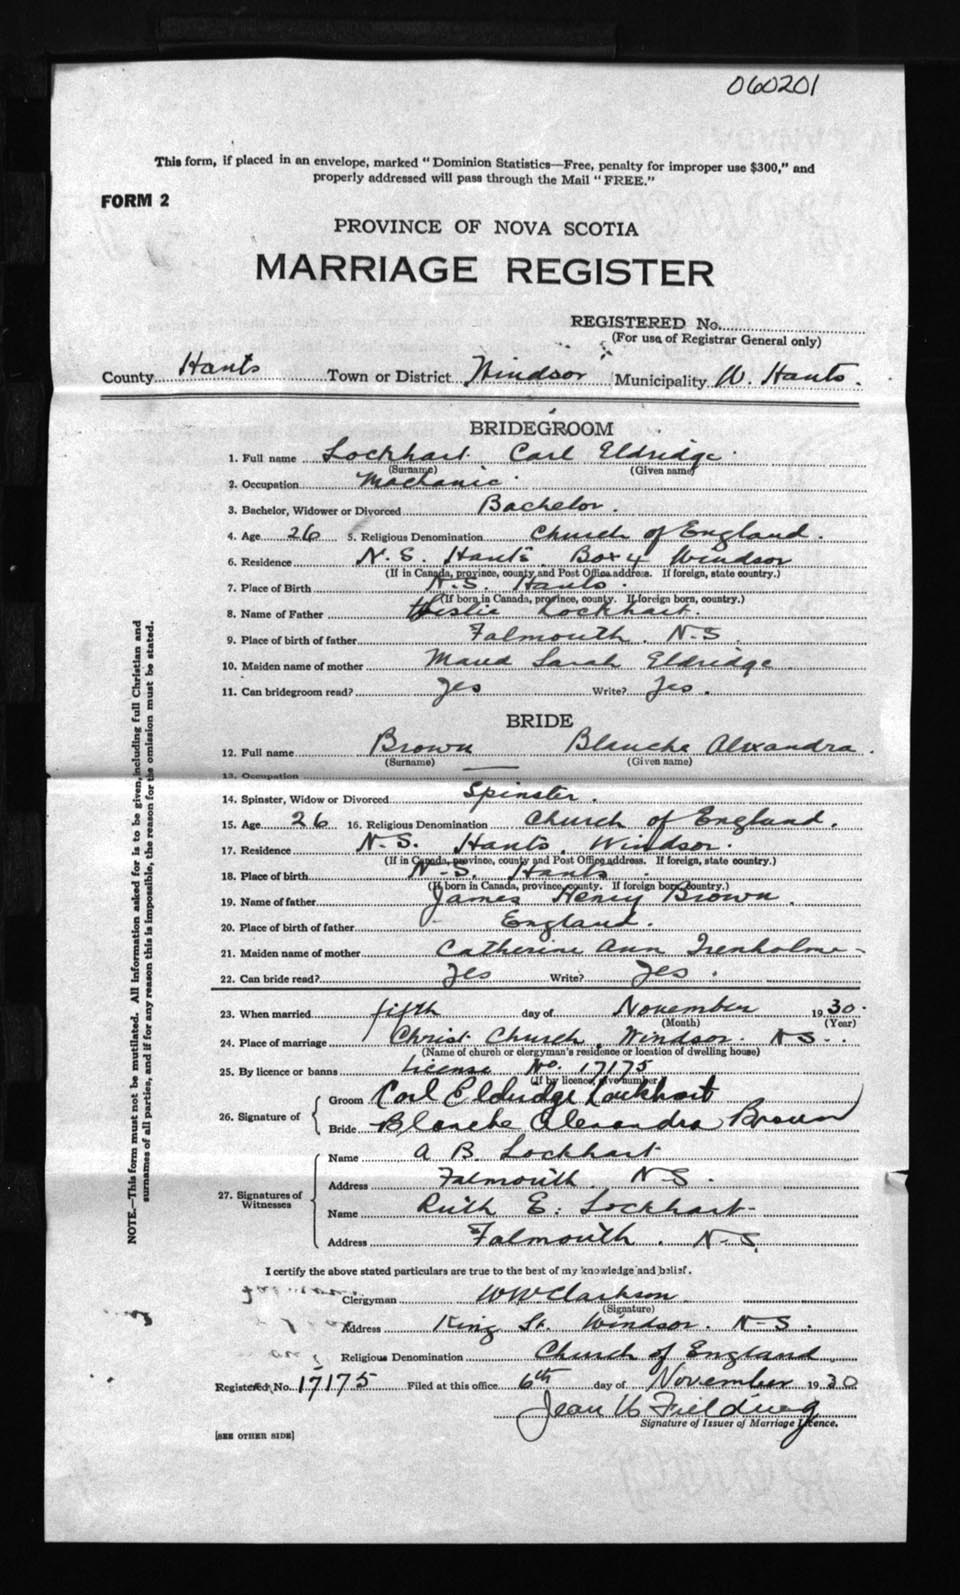 060201
This form, if placed in an envelope, marked "Dominion Statistics—Free, penalty for improper use $300," and
properly addressed will pass through the Mail "FREE."
FORM 2
PROVINCE OF NOVA SCOTIA
MARRIAGE REGISTER
REGISTERED No.
(For use of Registrar General only)
County Hants Town or District Windsor Municipality W. Hants.
BRIDEGROOM
1. Full name Lockhart Carl Eldridge
(Surname) (Given name)
2. Occupation Mechanic
3. Bachelor, Widower or Divorced Bachelor.
4. Age 26 5. Religious Denomination Church of England.
6. Residence N.S. Hants Box 4 Windsor
(If in Canada, province, county and Post Office address. If foreign, state country.)
7. Place of Birth N.S. Hants
(If born in Canada, province, county. If foreign born, country.)
8. Name of Father Leslie Lockhart.
9. Place of birth of father Falmouth. N-S
10. Maiden name of mother Maud Sarah Eldridge
11. Can bridegroom read? Yes Write? Yes.
BRIDE
12. Full name Brown Blanche Alexandra.
(Surname) (Given name)
13. Occupation —
14. Spinster, Widow or Divorced Spinster.
15. Age 26 16. Religious Denomination Church of England.
17. Residence N-S. Hants. Windsor.
(If in Canada, province, county and Post Office address. If foreign, state country.)
18. Place of birth N-S. Hants
(If born in Canada, province, county. If foreign born, country.)
19. Name of father James Henry Brown.
20. Place of birth of father England.
21. Maiden name of mother Catherine Ann Trenholme
22. Can bride read? Yes Write? Yes.
23. When married fifth day of November 1930.
(Month) (Year)
24. Place of marriage Christ Church, Windsor. N S.
(Name of church or clergyman's residence or location of dwelling house)
25. By licence or banns License No. 17175
(If by licence, give number)
26. Signature of Groom Carl Eldridge Lockhart
Bride Blanche Alexandra Brown
27. Signatures of Witnesses
Name A B. Lockhart
Address Falmouth. N-S.
Name Ruth E. Lockhart
Address Falmouth. N-S.
I certify the above stated particulars are true to the best of my knowledge and belief.
Clergyman WW Clarkson
(Signature)
Address King St. Windsor. N-S.
Religious Denomination Church of England
Registered No. 17175 Filed at this office 6th day of November 1930
Jean U Fielding
Signature of Issuer of Marriage Licence.
[SEE OTHER SIDE]
NOTE.—This form must not be mutilated. All information asked for is to be given, including full Christian and
surnames of all parties, and if for any reason this is impossible, the reason for the omission must be stated.